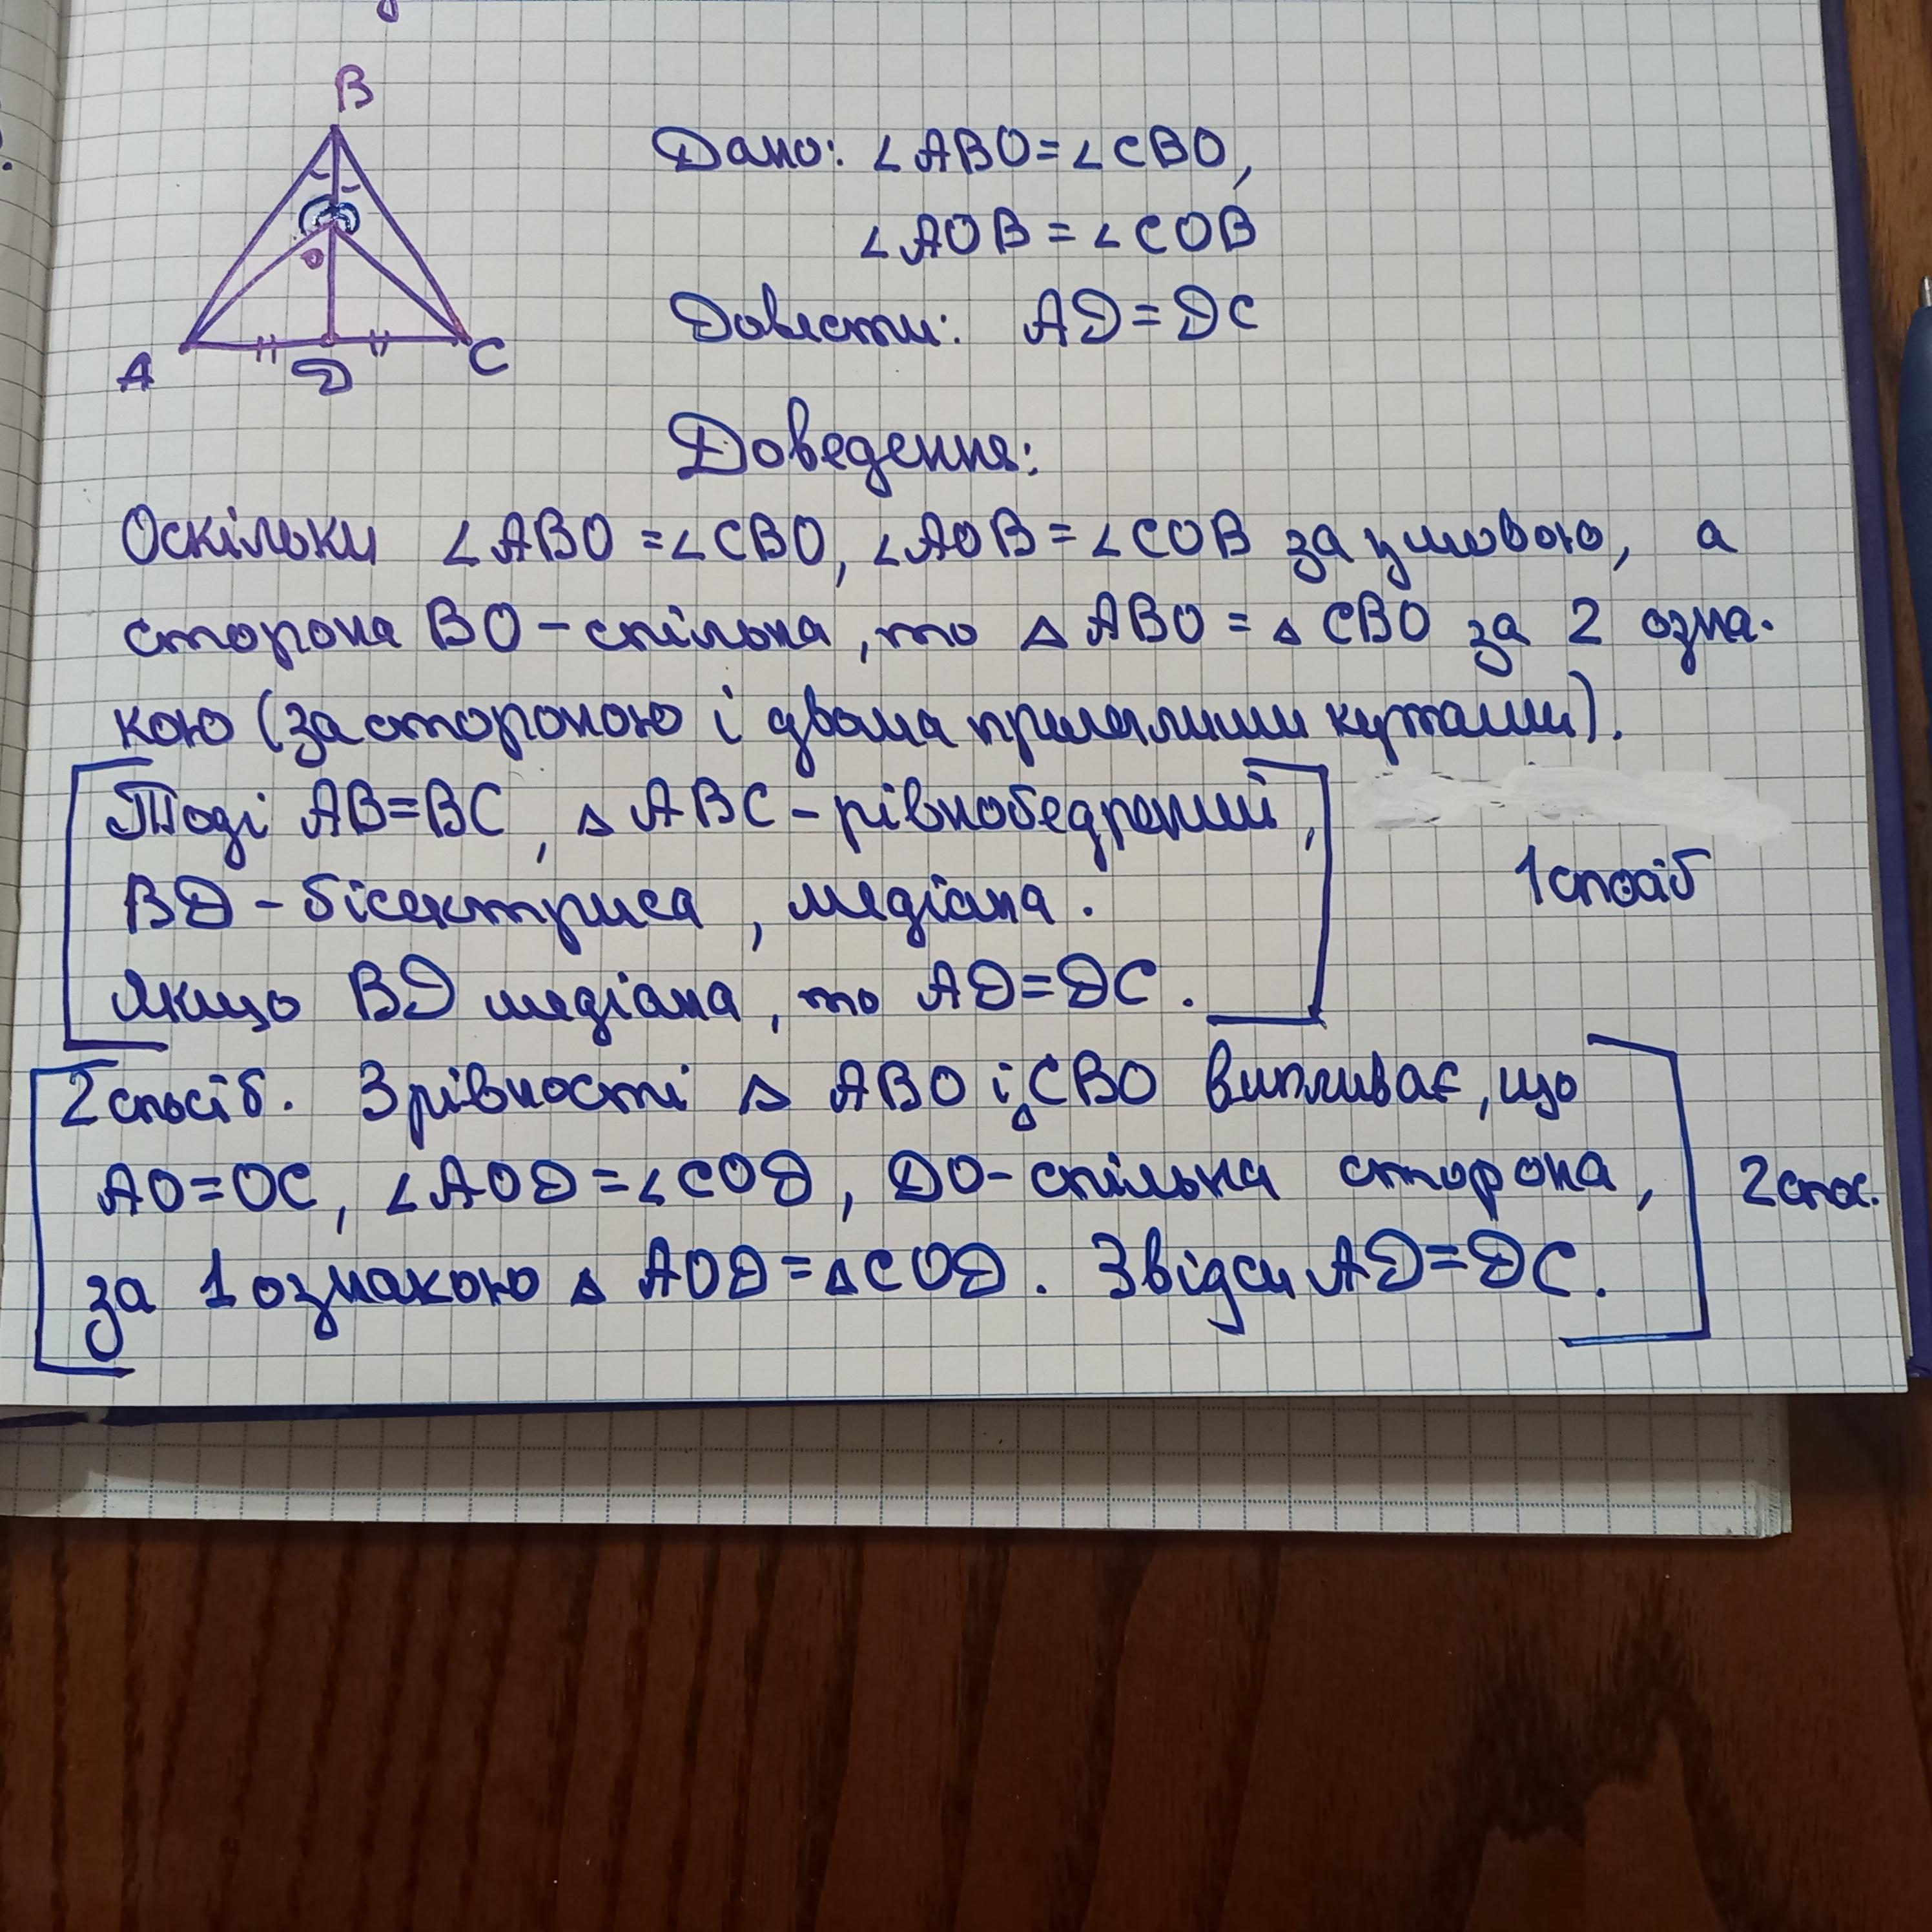 B
A
D
C
O
Дано: ∠ABO=∠CBO,
∠AOB=∠COB
Довести: AD=DC
Доведення:
Оскільки ∠ABO=∠CBO, ∠AOB=∠COB за умовою, а
сторона BO-спільна, то △ABO=△CBO за 2 озна-
кою (за стороною і двома прилеглими кутами).
Тоді AB=BC, △ABC-рівнобедрений,
BD-бісектриса, медіана.
Якщо BD медіана, то AD=DC.
1 спосіб
2 спосіб. З рівності △ABO і △CBO випливає, що
AO=OC, ∠AOD=∠COD, DO-спільна сторона,
за 1 ознакою △AOD=△COD. Звідси AD=DC.
2 спос.